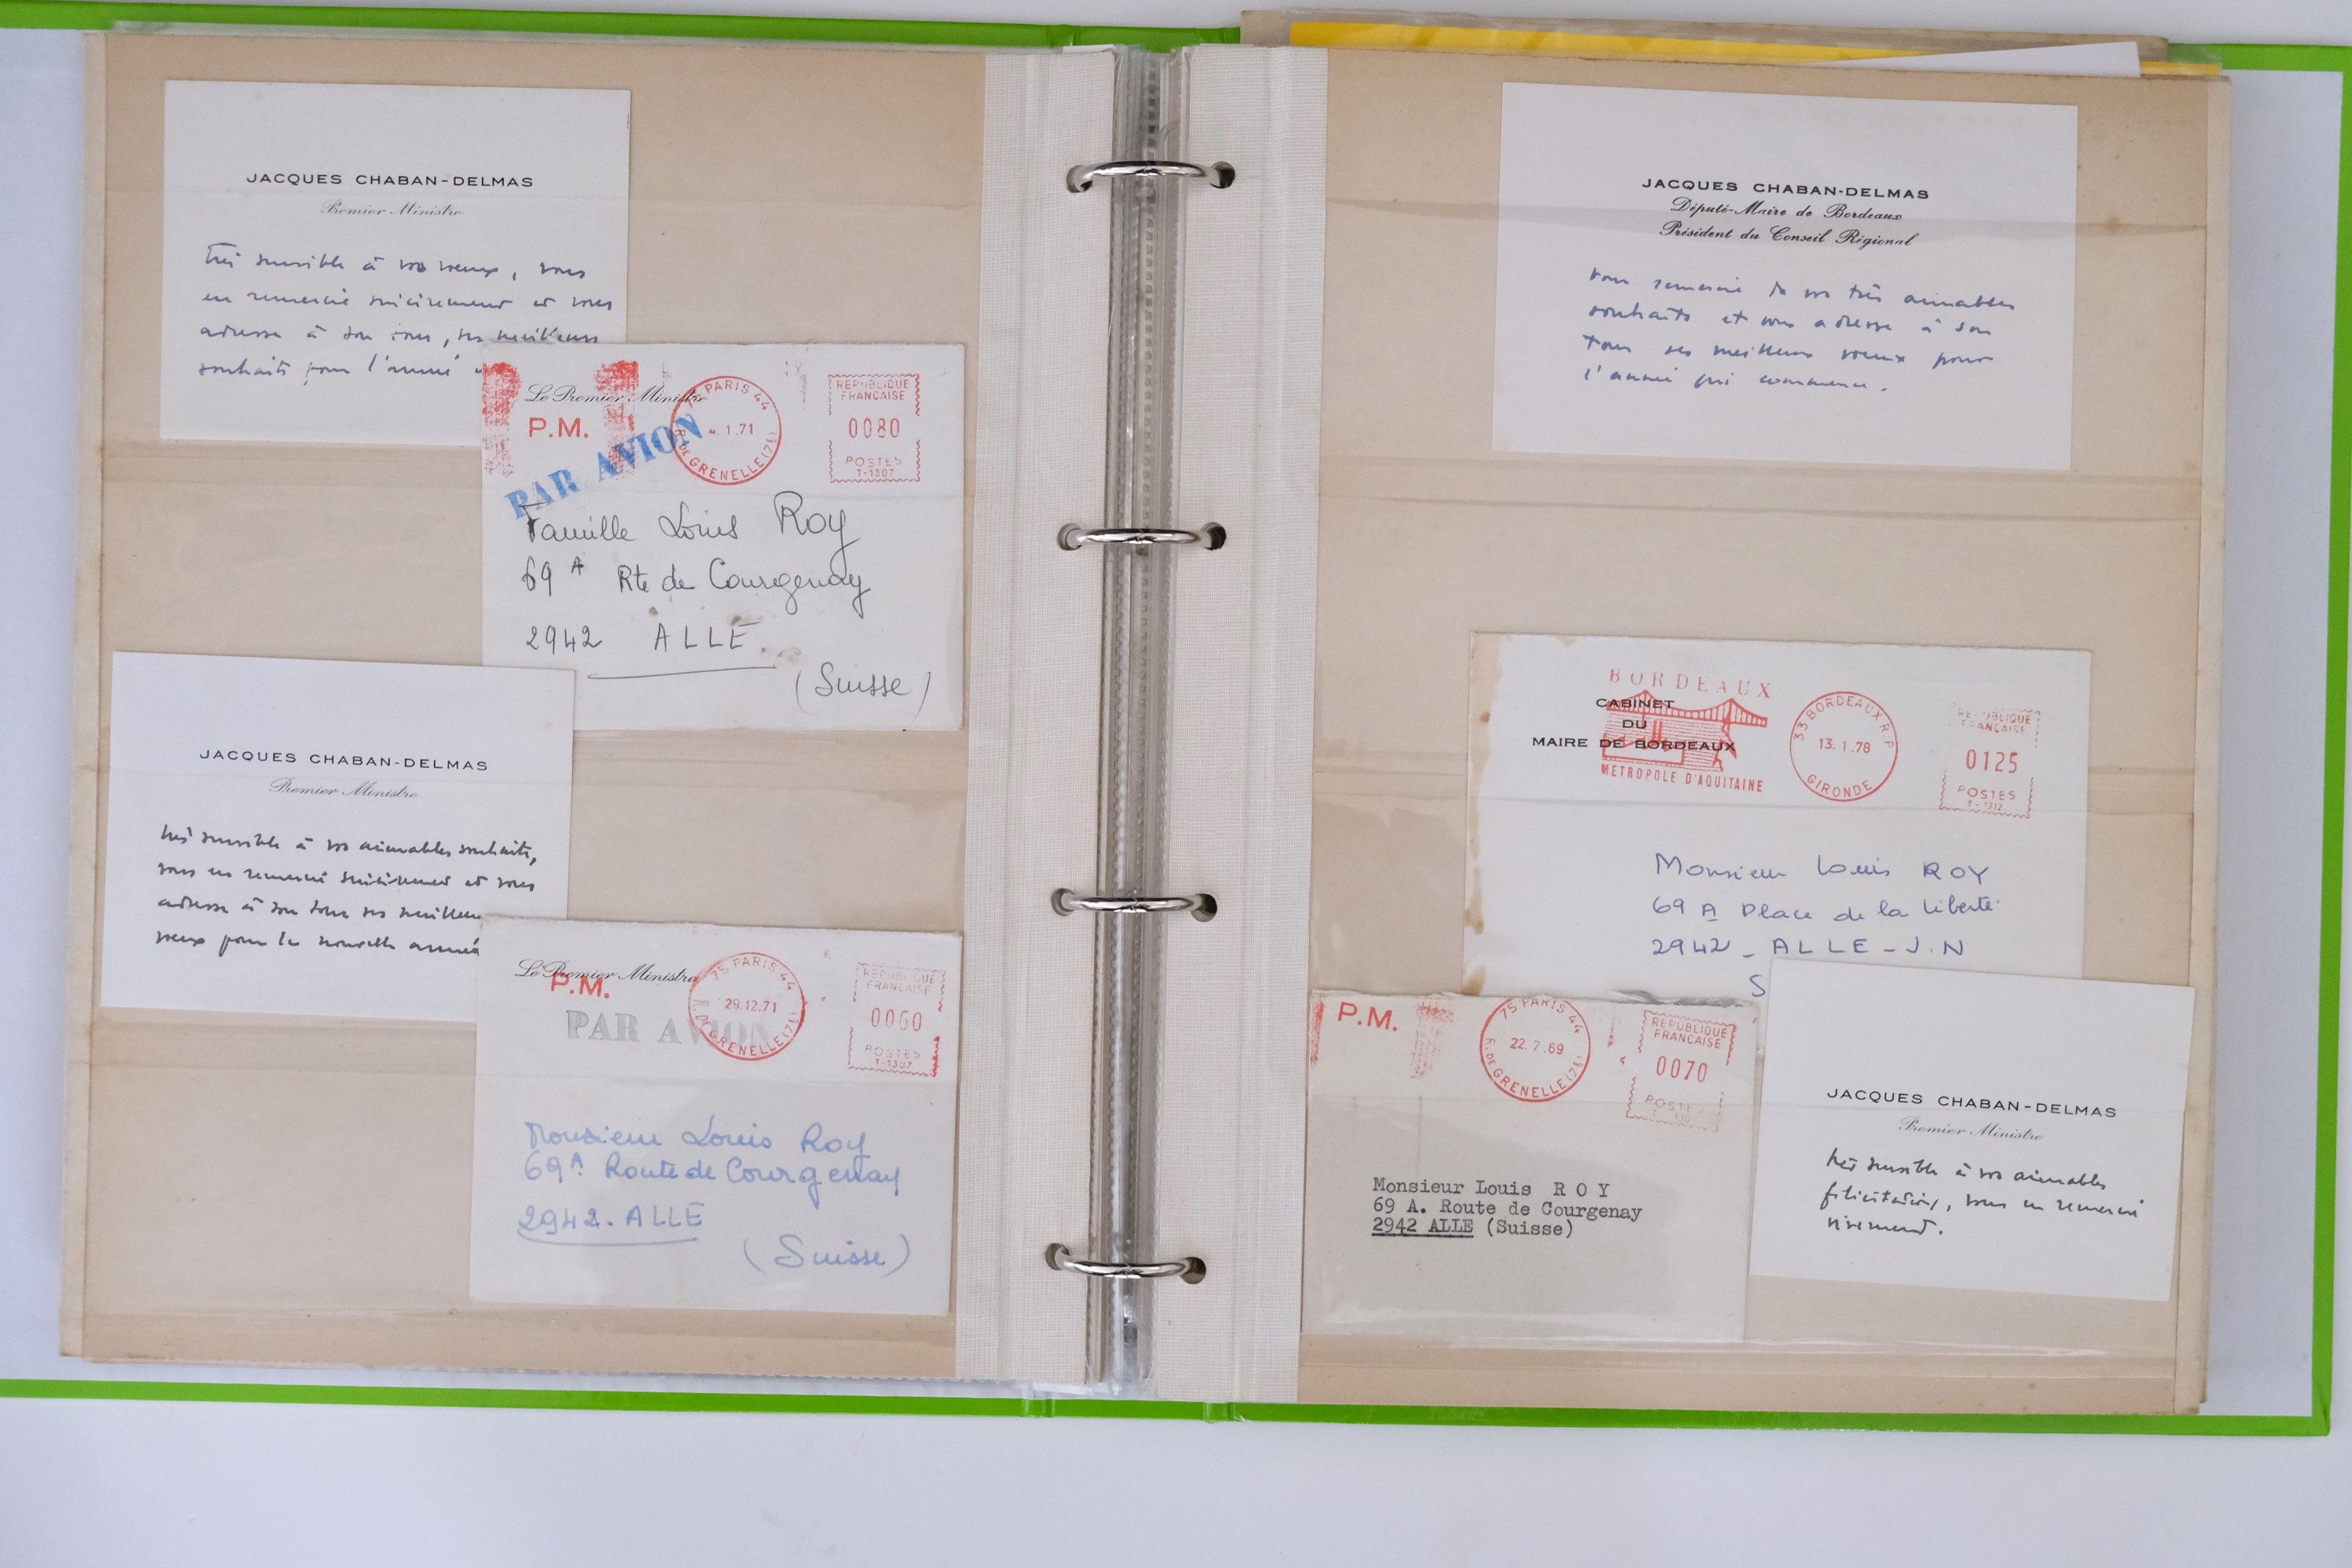 JACQUES CHABAN-DELMAS
Premier Ministre
très sensible à vos voeux, vous
en remercie sincèrement et vous
adresse à son tour, ses meilleurs
souhaits pour l'année
Le Premier Ministre
P.M.
PAR AVION
75 PARIS 44
4.1.71
R. DE GRENELLE (7E)
REPUBLIQUE
FRANCAISE
0080
POSTES
T-1307
Famille Louis Roy
69 A Rte de Courgenay
2942 ALLE
(Suisse)
JACQUES CHABAN-DELMAS
Premier Ministre
très sensible à vos aimables souhaits,
vous en remercie sincèrement et vous
adresse à son tour ses meilleurs
voeux pour la nouvelle année
Le Premier Ministre
P.M.
PAR AVION
75 PARIS 44
29.12.71
R. DE GRENELLE (7E)
REPUBLIQUE
FRANCAISE
0060
POSTES
T-1307
Monsieur Louis Roy
69 A. Route de Courgenay
2942. ALLE
(Suisse)
JACQUES CHABAN-DELMAS
Député-Maire de Bordeaux
Président du Conseil Régional
vous remercie de vos très aimables
souhaits et vous adresse à son
tour ses meilleurs voeux pour
l'année qui commence.
BORDEAUX
CABINET
DU
MAIRE DE BORDEAUX
METROPOLE D'AQUITAINE
33 BORDEAUX R.P
13.1.78
GIRONDE
REPUBLIQUE
FRANCAISE
0125
POSTES
T-1712
Monsieur Louis ROY
69 A Place de la Liberté
2942 - ALLE - J.N
S
P.M.
75 PARIS 44
22.7.69
R. DE GRENELLE (7E)
REPUBLIQUE
FRANCAISE
0070
POSTES
Monsieur Louis R O Y
69 A. Route de Courgenay
2942 ALLE (Suisse)
JACQUES CHABAN-DELMAS
Premier Ministre
très sensible à vos aimables
félicitations, vous en remercie
vivement.